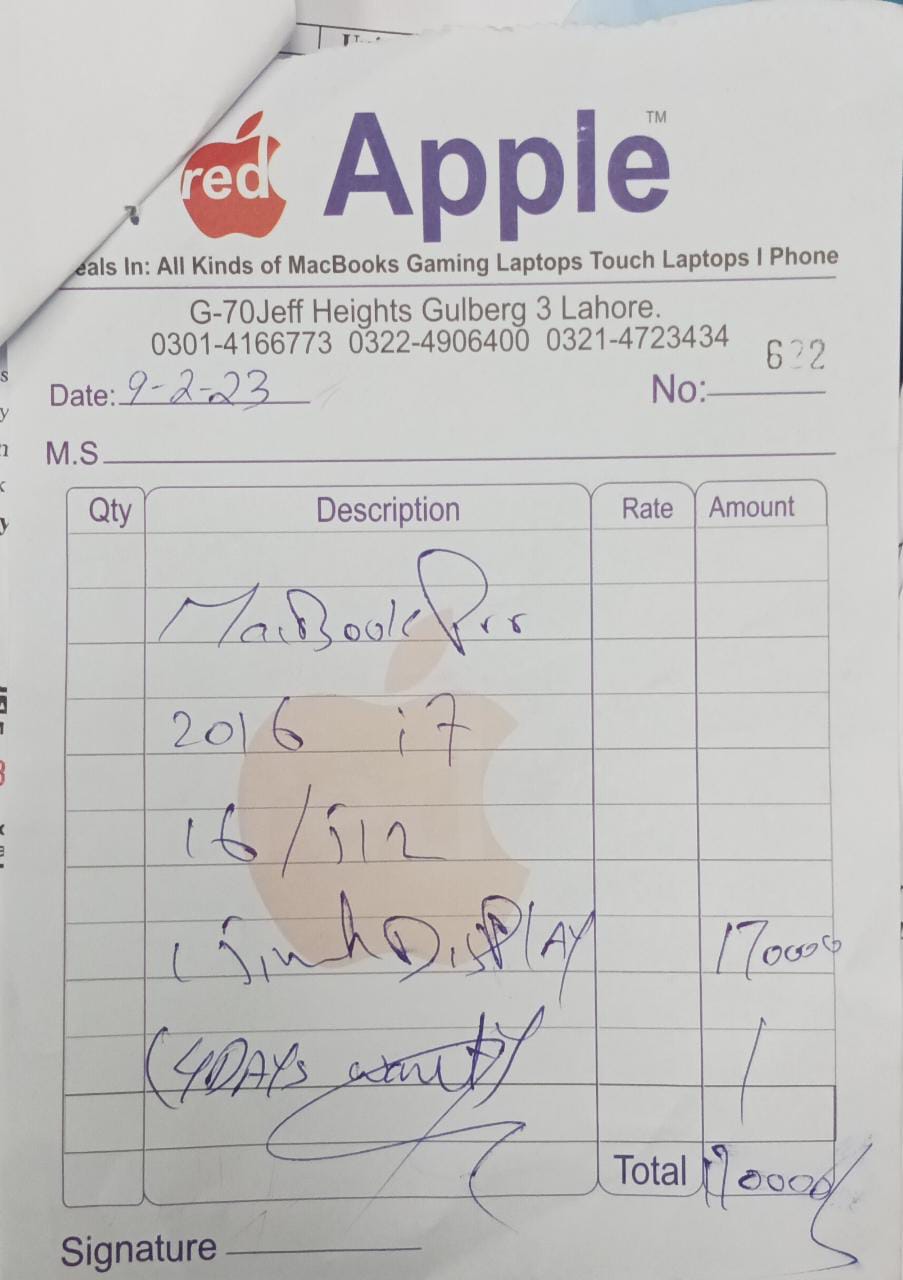 red Apple TM
eals In: All Kinds of MacBooks Gaming Laptops Touch Laptops I Phone
G-70Jeff Heights Gulberg 3 Lahore.
0301-4166773 0322-4906400 0321-4723434
622
Date: 9-2-23 No:
M.S
Qty Description Rate Amount
MacBook Pro
2016 i7
16/512
15inch DisPlAY 170000
(4DAYs
Total 170000
Signature